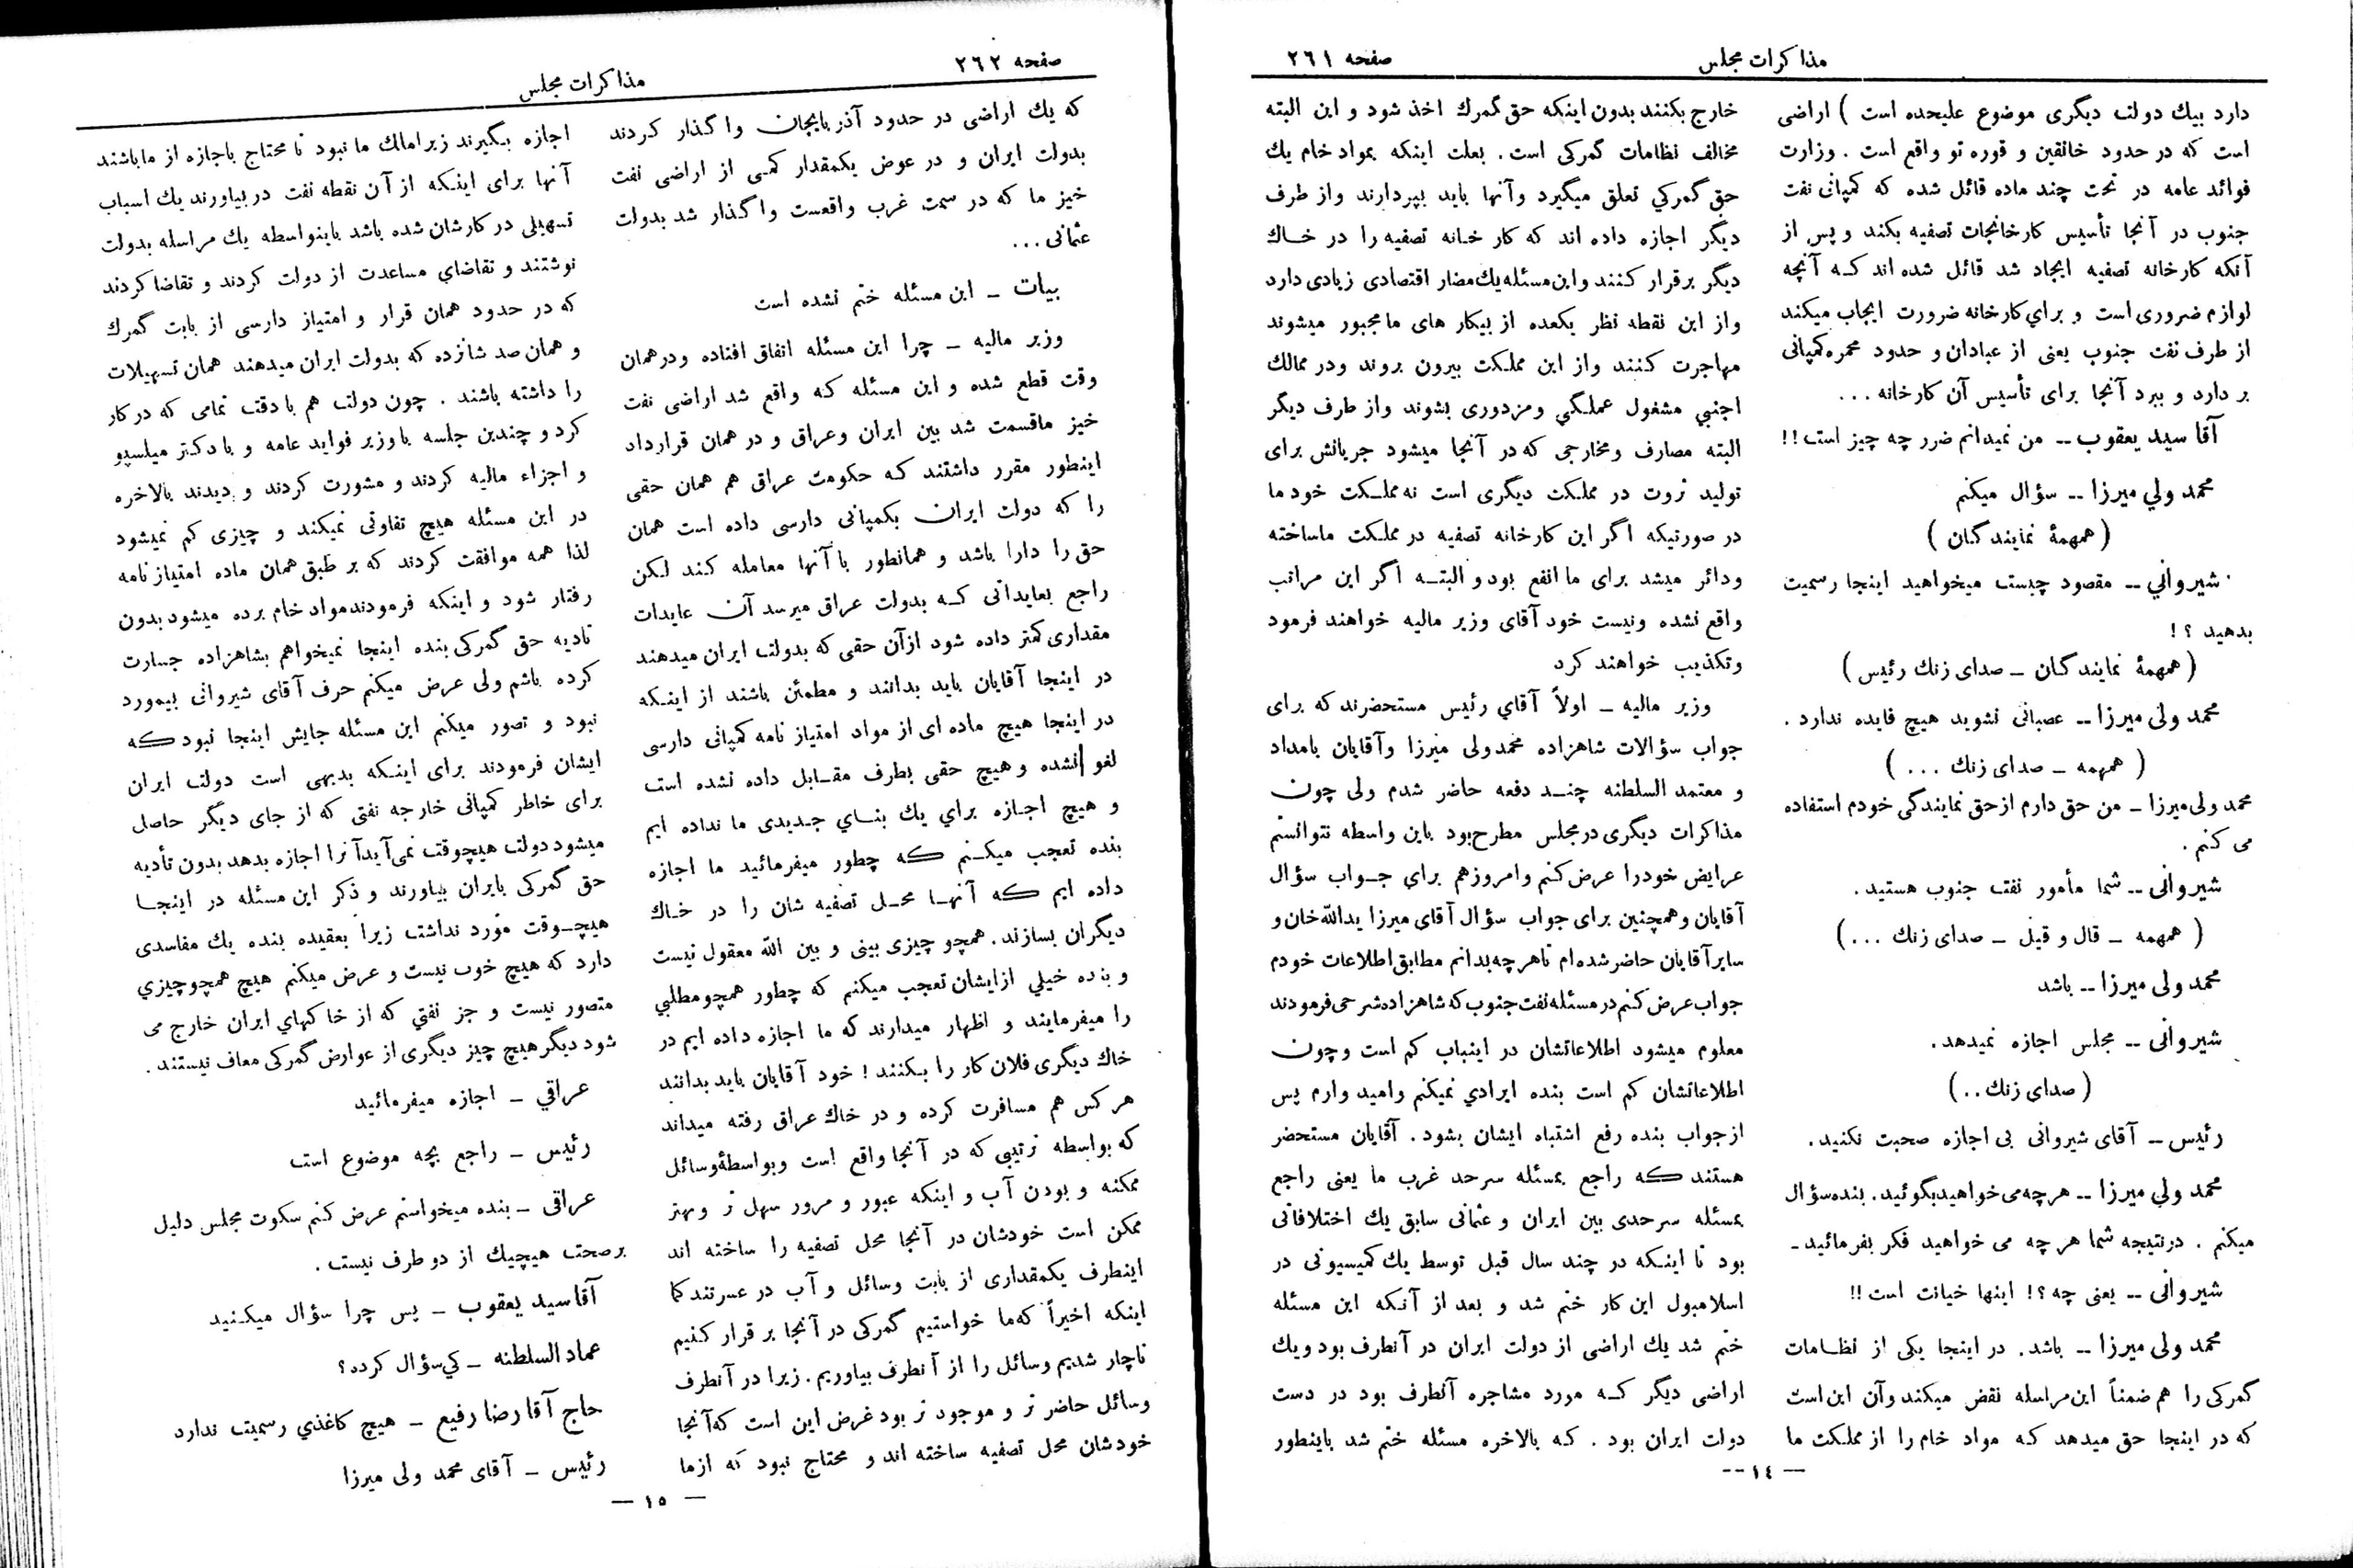 مذاکرات مجلس
صفحه ۲۶۱
دارد بیك دولت دیگری موضوع علیحده است ) اراضی
است که در حدود خانقین و قوره تو واقع است . وزارت
فوائد عامه در تحت چند ماده قائل شده که کمپانی نفت
جنوب در آنجا تأسیس کارخانجات تصفیه بکند و پس از
آنکه کارخانه تصفیه ایجاد شد قائل شده اند کـه آنچه
لوازم ضروری است و برای کارخانه ضرورت ایجاب میکند
از طرف نفت جنوب یعنی از عبادان و حدود محمره کمپانی
بر دارد و ببرد آنجا برای تأسیس آن کارخانه ...
آقا سید یعقوب ــ من نمیدانم ضرر چه چیز است !!
محمد ولي میرزا ــ سؤال میکنم
( همهمهٔ نمایندگان )
شیروانی ــ مقصود چیست میخواهید اینجا رسمیت
بدهید ؟ !
( همهمهٔ نمایندگان ــ صدای زنك رئیس )
محمد ولی میرزا ــ عصبانی نشوید هیچ فایده ندارد .
( همهمه ــ صدای زنك ... )
محمد ولی میرزا ــ من حق دارم از حق نمایندگی خودم استفاده
می کنم .
شیروانی ــ شما مأمور نفت جنوب هستید .
( همهمه ــ قال و قیل ــ صدای زنك ... )
محمد ولی میرزا ــ باشد
شیروانی ــ مجلس اجازه نمیدهد .
( صدای زنك .. )
رئیس ــ آقای شیروانی بی اجازه صحبت نکنید .
محمد ولي میرزا ــ هر چه می خواهید بگوئید . بنده سؤال
میکنم . در نتیجه شما هر چه می خواهید فکر بفرمائید ــ
شیروانی ــ یعنی چه ؟! اینها خیانت است !!
محمد ولی میرزا ــ باشد . در اینجا یکی از نظـامات
گمرکی را هم ضمناً این مراسله نقض میکند و آن این است
که در اینجا حق میدهد کـه مواد خام را از مملکت ما
خارج بکنند بدون اینکه حق گمرك اخذ شود و این البته
مخالف نظامات گمرکی است . بعلت اینکه بمواد خام یك
حق گمرکي تعلق میگیرد و آنها باید بپردارند و از طرف
دیگر اجازه داده اند که کار خـانه تصفیه را در خـاك
دیگر بر قرار کـنند و این مسئله یك مضار اقتصادی زیادی دارد
و از این نقطه نظر یکعده از بیکار های ما مجبور میشوند
مهاجرت کـنند و از این مملـکت بیرون بروند و در ممالك
اجنبي مشغول عملـگي و مزدوری بشوند و از طرف دیگر
البته مصارف و مخارجی که در آنجا میشود جریانش برای
تولید ثروت در مملـکت دیگری است نه مملـکت خود ما
در صورتیکه اگر این کارخانه تصفیه در مملـکت ما ساخته
و دائر میشد برای ما انفع بود و البتـه اگر این مراتب
واقع نشده و نیست خود آقای وزیر مالیه خواهند فرمود
و تکذیب خواهند کرد
وزیر مالیه ــ اولاً آقاي رئیس مستحضرند که برای
جواب سؤالات شاهزاده محمد ولی میرزا و آقایان بامداد
و معتمد السلطنه چنـد دفعه حاضر شدم ولی چون
مذاکرات دیگری در مجلس مطرح بود باین واسطه نتوانستم
عرایض خود را عرض کنم و امروز هم برای جـواب سؤال
آقایان و همچنین برای جواب سؤال آقای میرزا یدالله خان و
سایر آقایان حاضر شده ام تا هر چه بدانم مطابق اطلاعات خودم
جواب عرض کنم در مسئله نفت جنوب که شاهزاده شرحی فرمودند
معلوم میشود اطلاعاتشان در اینباب کم است و چون
اطلاعاتشان کم است بنده ایرادي نمیکنم و امید وارم پس
از جواب بنده رفع اشتباه ایشان بشود . آقایان مستحضر
هستند کـه راجع بمسئله سرحد غرب ما یعنی راجع
بمسئله سرحدی بین ایران و عثمانی سابق یك اختلافاتی
بود تا اینـکه در چند سال قبل توسط یك کمیسیونی در
اسلامبول این کار ختم شد و بعد از آنـکه این مسئله
ختم شد یك اراضی از دولت ایران در آنطرف بود و یك
اراضی دیگر کـه مورد مشاجره آنطرف بود در دست
دولت ایران بود . کـه بالاخره مسئله ختم شد باینطور
ــ ۱٤ ــ
صفحه ۲۶۲
مذاکرات مجلس
که یك اراضی در حدود آذربایجان واگذار کردند
بدولت ایران و در عوض یکمقدار کمـی از اراضی نفت
خیز ما که در سمت غرب واقعست واگذار شد بدولت
عثمانی ...
بیات ــ این مسئله ختم نشده است
وزیر مالیه ــ چرا این مسئله اتفاق افتاده و در همان
وقت قطع شده و این مسئله که واقع شد اراضی نفت
خیز ما قسمت شد بین ایران و عراق و در همان قرارداد
اینطور مقرر داشتند کـه حکومت عراق هم همان حقی
را که دولت ایران بکمپانی دارسی داده است همان
حق را دارا باشد و همانطور با آنها معامله کـند لـکن
راجع بعایداتی کـه بدولت عراق میرسد آن عایدات
مقداری کمتر داده شود از آن حقی که بدولت ایران میدهند
در اینجا آقایان باید بدانند و مطمئن باشند از اینـکه
در اینجا هیچ ماده ای از مواد امتیاز نامه کمپانی دارسی
لغو نشده و هیچ حقی بطرف مقـابل داده نشده است
و هیچ اجـازه براي یك بنـاي جـدیدی ما نداده ایم
بنده تعجب میکـنم کـه چطور میفرمائید ما اجازه
داده ایم کـه آنهـا محـل تصفیه شان را در خـاك
دیگران بسازند . همچو چیزی بینی و بین الله معقول نیست
و بنده خیلي از ایشان تعجب میکنم که چطور همچو مطلبي
را میفرمایند و اظهار میدارند که ما اجازه داده ایم در
خاك دیگری فلان کار را بـکنند ! خود آقایان باید بدانند
هر کس هم مسافرت کرده و در خاك عراق رفته میداند
که بواسطه ترتیبی که در آنجا واقع است و بواسطهٔ وسائل
ممکنه و بودن آب و اینکه عبور و مرور سهل تر و بهتر
ممکن است خودشان در آنجا محل تصفیه را ساخته اند
اینطرف یکمقداری از بابت وسائل و آب در عسرتند کما
اینکه اخیراً که ما خواستیم گمرکی در آنجا بر قرار کـنیم
ناچار شدیم وسائل را از آنطرف بیاوریم . زیرا در آنطرف
وسائل حاضر تر و موجود تر بود غرض این است که آنجا
خودشان محل تصفیه ساخته اند و محتاج نبود که از ما
اجازه بـگیرند زیرا مالك ما نبود تا محتاج باجازه از ما باشند
آنها برای اینـکه از آن نقطه نفت در بیاورند یك اسباب
تسهیلی در کارشان شده باشد باینواسطه یك مراسله بدولت
نوشتند و تقاضاي مساعدت از دولت کردند و تقاضا کردند
که در حدود همان قرار و امتیاز دارسی از بابت گمرك
و همان صد شانزده که بدولت ایران میدهند همان تسهیلات
را داشته باشند . چون دولت هم با دقت تمامی که در کار
کرد و چندین جلسه با وزیر فواید عامه و با دکتر میلسپو
و اجزاء مالیه کردند و مشورت کردند و دیدند بالاخره
در این مسئله هیچ تفاوتی نمیکند و چیزی کم نمیشود
لذا همه موافقت کردند که بر طبق همان ماده امتیاز نامه
رفتار شود و اینکه فرمودند مواد خام برده میشود بدون
تادیه حق گمرکی بنده اینجا نمیخواهم بشاهزاده جسارت
کرده باشم ولی عرض میکنم حرف آقای شیروانی بیمورد
نبود و تصور میکنم این مسئله جایش اینجا نبود کـه
ایشان فرمودند برای اینـکه بدیهی است دولت ایران
برای خاطر کمپانی خارجه نفتی که از جای دیگر حاصل
میشود دولت هیچوقت نمی آید آنرا اجازه بدهد بدون تأدیه
حق گمرکی بایران بیاورند و ذکر این مسئله در اینجـا
هیچـوقت مورد نداشت زیرا بعقیده بنده یك مفاسدی
دارد که هیچ خوب نیست و عرض میکنم هیچ همچو چیزي
متصور نیست و جز نفتي که از خاکهاي ایران خارج می
شود دیگر هیچ چیز دیگری از عوارض گمرکی معاف نیستند .
عراقي ــ اجازه میفرمائید
رئیس ــ راجع بچه موضوع است
عراقی ــ بنده میخواستم عرض کنم سکوت مجلس دلیل
بر صحت هیچیك از دو طرف نیست .
آقا سید یعقوب ــ پس چرا سؤال میکـنید
عماد السلطنه ــ کي سؤال کرده ؟
حاج آقا رضا رفیع ــ هیچ کاغذي رسمیت ندارد
رئیس ــ آقای محمد ولی میرزا
ــ ۱۵ ــ